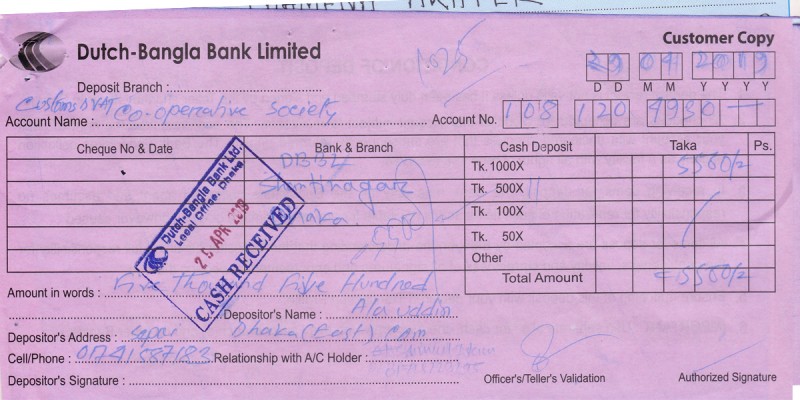 Customer Copy
Dutch-Bangla Bank Limited
29 04 2019
D D M M Y Y Y Y
Deposit Branch :
Customs &VAT Co-operative society
Account Name : Account No. 108 120 4930
Cheque No & Date Bank & Branch Cash Deposit Taka Ps.
DBBL Tk. 1000X
Shantinagar Tk. 500X 11
Dhaka Tk. 100X
5500 Tk. 50X
Other
Total Amount
Dutch-Bangla Bank Ltd.
Local Office, Dhaka.
APR 2019
CASH RECEIVED
Amount in words : Five Thousand Five Hundred
Depositor's Name : Ala uddin
Depositor's Address : Sepai Dhaka (East) Com
Cell/Phone : 01741587183 Relationship with A/C Holder :
Depositor's Signature : Officer's/Teller's Validation Authorized Signature